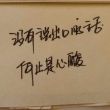 没有说出口的话
何止是心酸